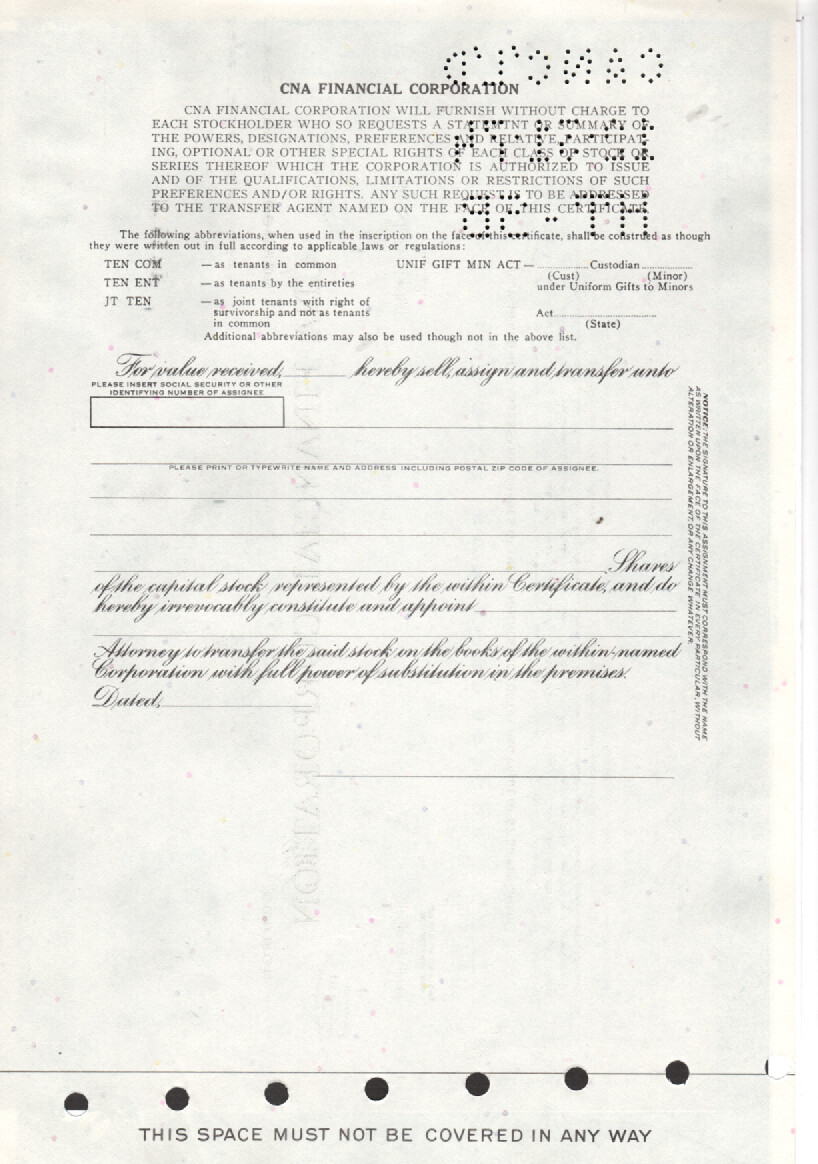 CNA FINANCIAL CORPORATION
CNA FINANCIAL CORPORATION WILL FURNISH WITHOUT CHARGE TO
EACH STOCKHOLDER WHO SO REQUESTS A STATEMENT OR SUMMARY OF
THE POWERS, DESIGNATIONS, PREFERENCES AND RELATIVE, PARTICIPAT-
ING, OPTIONAL OR OTHER SPECIAL RIGHTS OF EACH CLASS OF STOCK OR
SERIES THEREOF WHICH THE CORPORATION IS AUTHORIZED TO ISSUE
AND OF THE QUALIFICATIONS, LIMITATIONS OR RESTRICTIONS OF SUCH
PREFERENCES AND/OR RIGHTS. ANY SUCH REQUEST IS TO BE ADDRESSED
TO THE TRANSFER AGENT NAMED ON THE FACE OF THIS CERTIFICATE.
The following abbreviations, when used in the inscription on the face of this certificate, shall be construed as though
they were written out in full according to applicable laws or regulations:
TEN COM — as tenants in common UNIF GIFT MIN ACT — .................. Custodian ..................
(Cust) (Minor)
TEN ENT — as tenants by the entireties under Uniform Gifts to Minors
JT TEN — as joint tenants with right of
survivorship and not as tenants Act..................................
in common (State)
Additional abbreviations may also be used though not in the above list.
For value received, hereby sell, assign and transfer unto
PLEASE INSERT SOCIAL SECURITY OR OTHER
IDENTIFYING NUMBER OF ASSIGNEE
PLEASE PRINT OR TYPEWRITE NAME AND ADDRESS INCLUDING POSTAL ZIP CODE OF ASSIGNEE.
Shares
of the capital stock represented by the within Certificate, and do
hereby irrevocably constitute and appoint
Attorney to transfer the said stock on the books of the within-named
Corporation with full power of substitution in the premises.
Dated,
NOTICE: THE SIGNATURE TO THIS ASSIGNMENT MUST CORRESPOND WITH THE NAME
AS WRITTEN UPON THE FACE OF THE CERTIFICATE IN EVERY PARTICULAR, WITHOUT
ALTERATION OR ENLARGEMENT, OR ANY CHANGE WHATEVER.
THIS SPACE MUST NOT BE COVERED IN ANY WAY